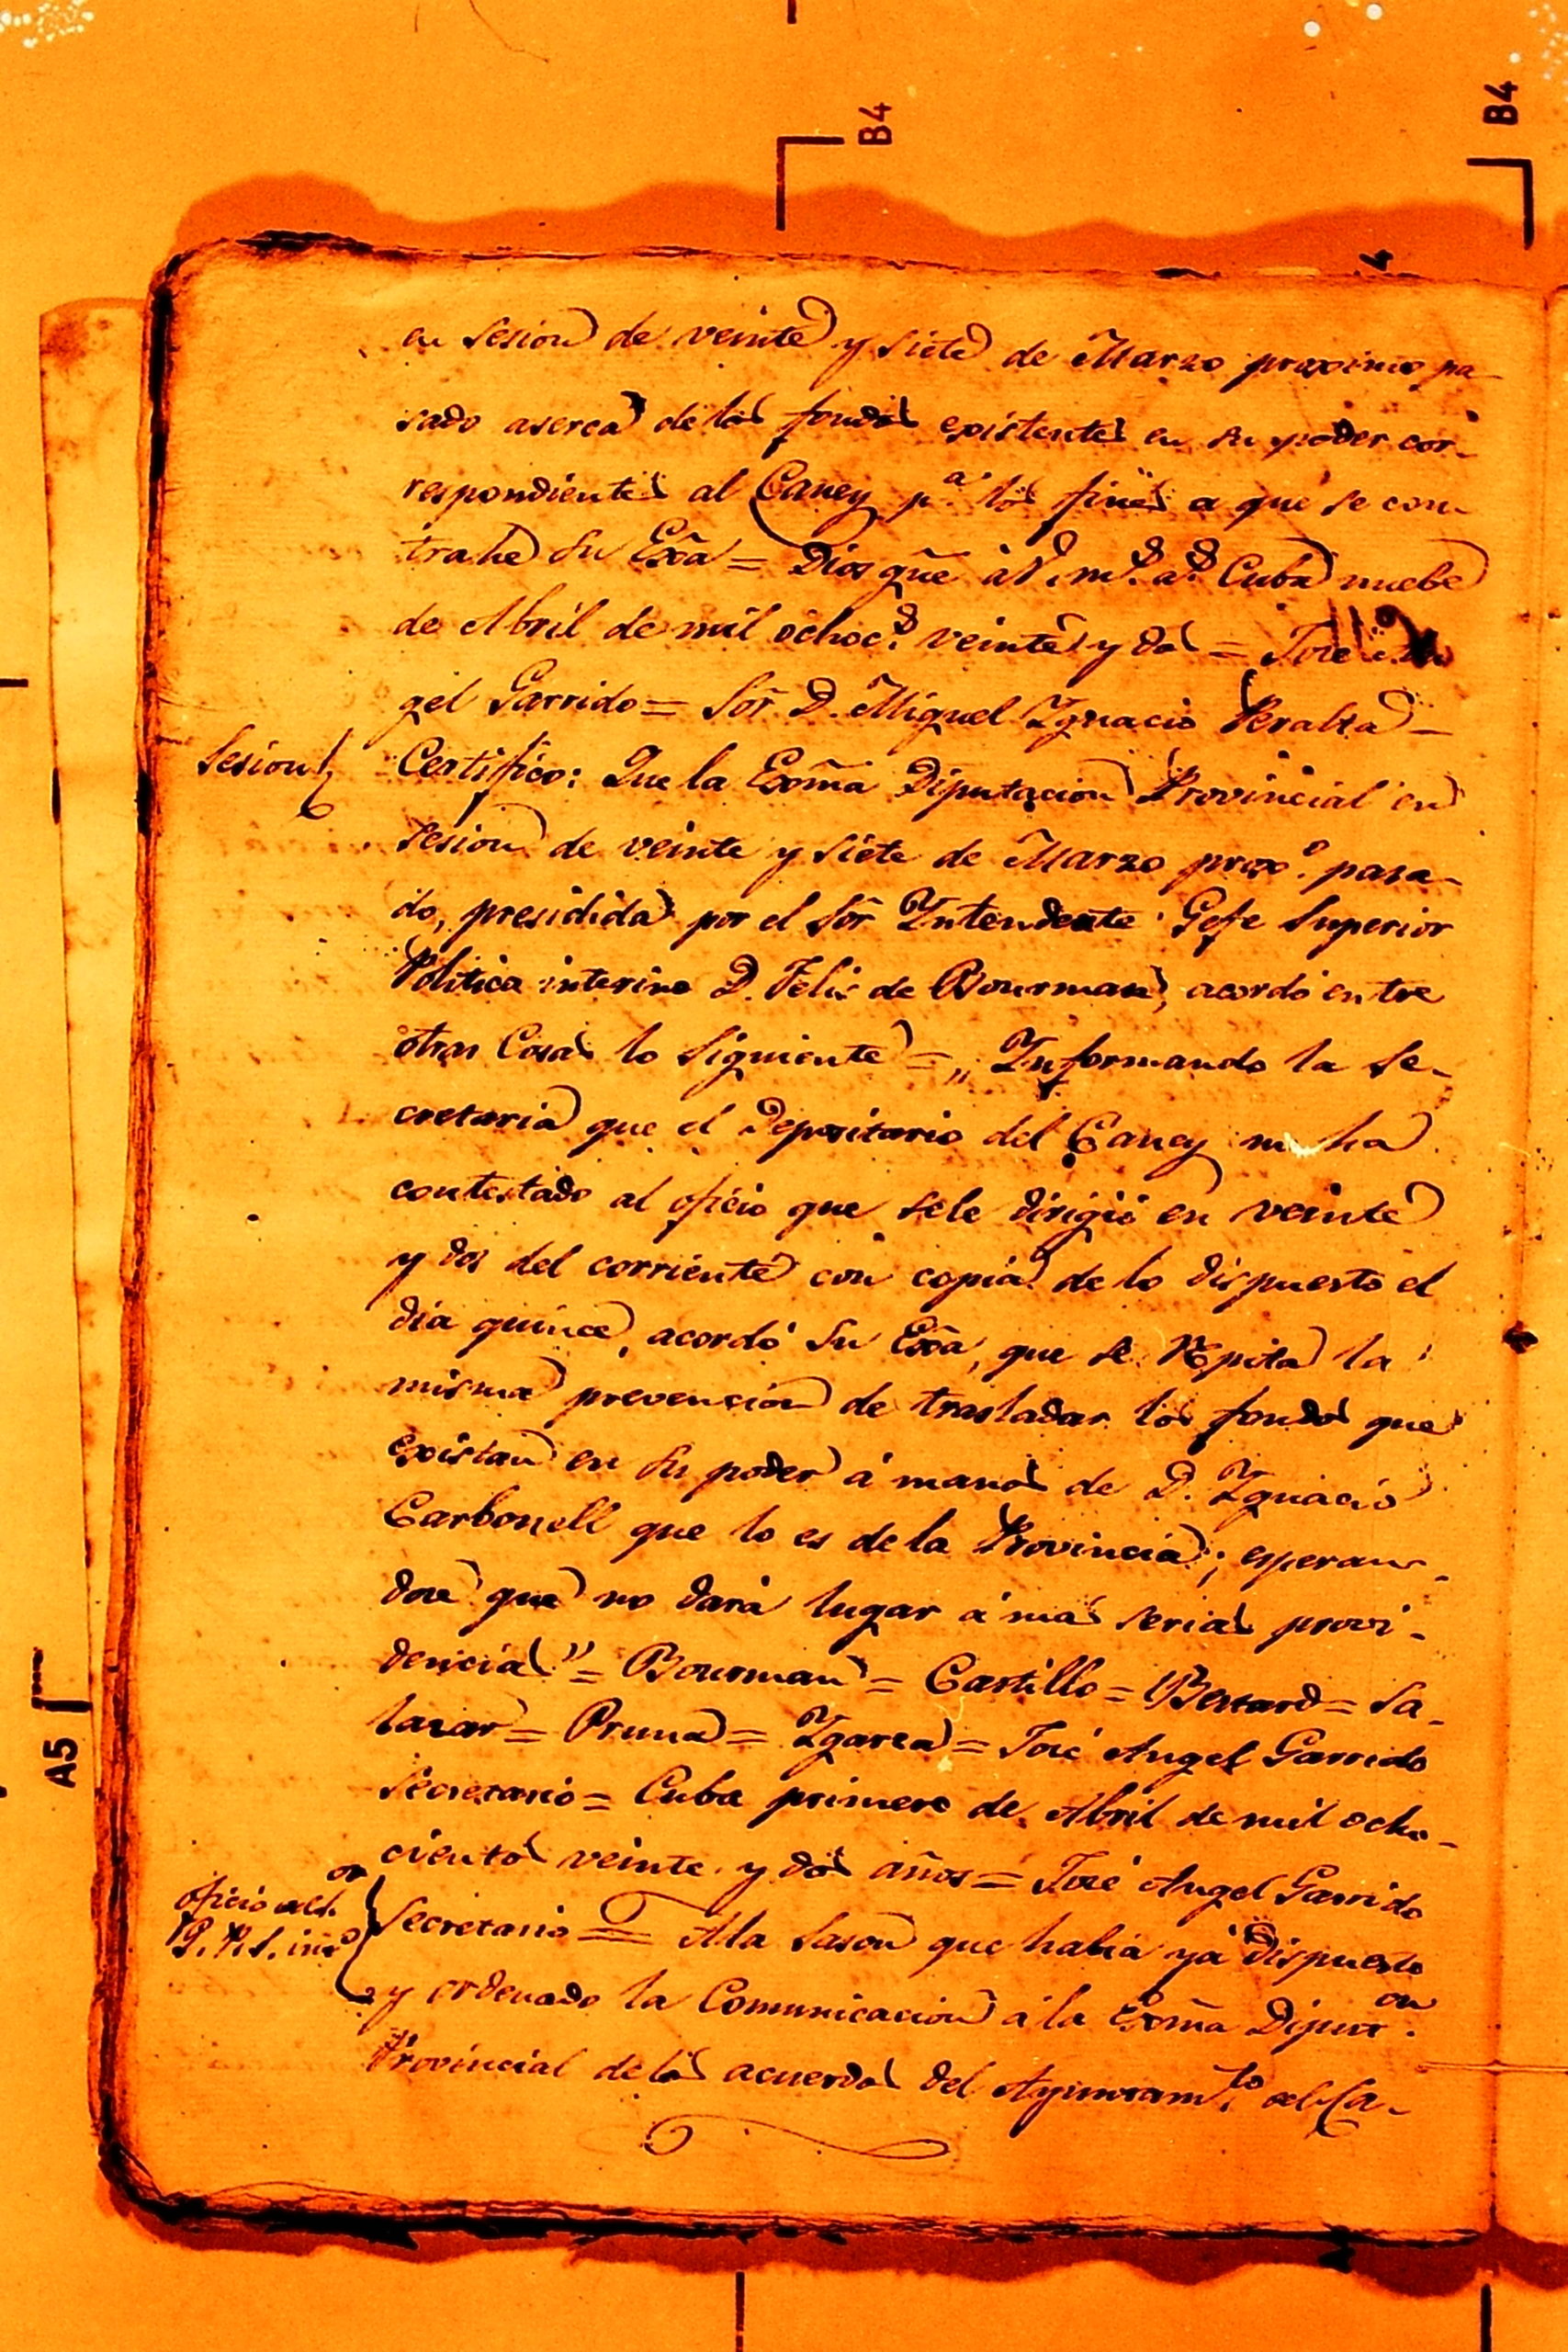 B4
B4
en sesion de veinte y siete de Marzo proximo pa-
sado aserca de los fondos existentes en su poder cor-
respondientes al Caney pª. los fines a que se con-
trahe Su Exã = Dios gũe à V. mˢ. aˢ. Cuba nuebe
de Abril de mil ochocˢ. veinte y dos = Jose
gel Garrido = Sor̃ D. Miguel Ygnacio Peralta =
Sesion
Certifico: Que la Exm̃a Diputacion Provincial en
sesion de veinte y siete de Marzo proxº. pasa-
do, presidida por el Sor̃ Yntendente Gefe Superior
Politico interino D. Felis de Bourman, acordó entre
otras Cosas lo siguiente = „ Ynformando la Se-
cretaria que el Depositario del Caney no ha
contestado al oficio que sele dirigió en veinte
y dos del corriente con copia de lo dispuesto el
dia quince, acordó Su Exã, que se repita la
misma prevencion de trasladar los fondos que
existan en su poder á manos de D. Ygnacio
Carbonell que lo es de la Provincia; esperan-
dose que no dará lugar á mas serias provi-
dencias" = Bourman = Castillo = Bestard = Sa-
lazar = Pruna = Ygarza = José Angel Garrido
Secretario = Cuba primero de Abril de mil ocho-
cientos veinte y dos años = José Angel Garrido
oficio del Sᵒʳ
Secretario = A la sason que habia yá dispuesto
y ordenado la Comunicacion á la Exm̃a Diputᵒⁿ.
Provincial de los acuerdos del Ayuntamᵗᵒ. del Ca-
A5